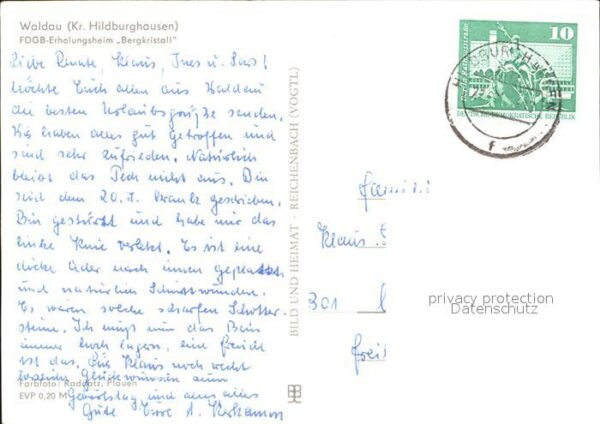 Waldau (Kr. Hildburghausen)
FDGB-Erholungsheim „Bergkristall"
Liebe Renate, Klaus, Ines u. Lars!
Möchte Euch allen aus Waldau
die besten Urlaubsgrüße senden.
Wir haben alles gut getroffen und
sind sehr zufrieden. Natürlich
bleibt das Pech nicht aus. Bin
seid dem 20.7. krank geschrieben.
Bin gestürzt und habe mir das
linke Knie verletzt. Es ist eine
dicke Ader nach innen geplatzt
und natürlich Schnittwunden.
Es waren solche scharfen Schotter-
steine. Ich muß nun das Bein
immer hoch lagern, eine Freude
ist das. Klaus noch recht
Glückwünsche zum
Geburtstag und alles
Gute Eure
Farbfoto: Raddatz, Plauen
EVP 0,20 M
BILD UND HEIMAT · REICHENBACH (VOGTL)
10
DEUTSCHE DEMOKRATISCHE REPUBLIK
HILDBURGHAUSEN
f
Famili
Klaus
301
frei
privacy protection
Datenschutz